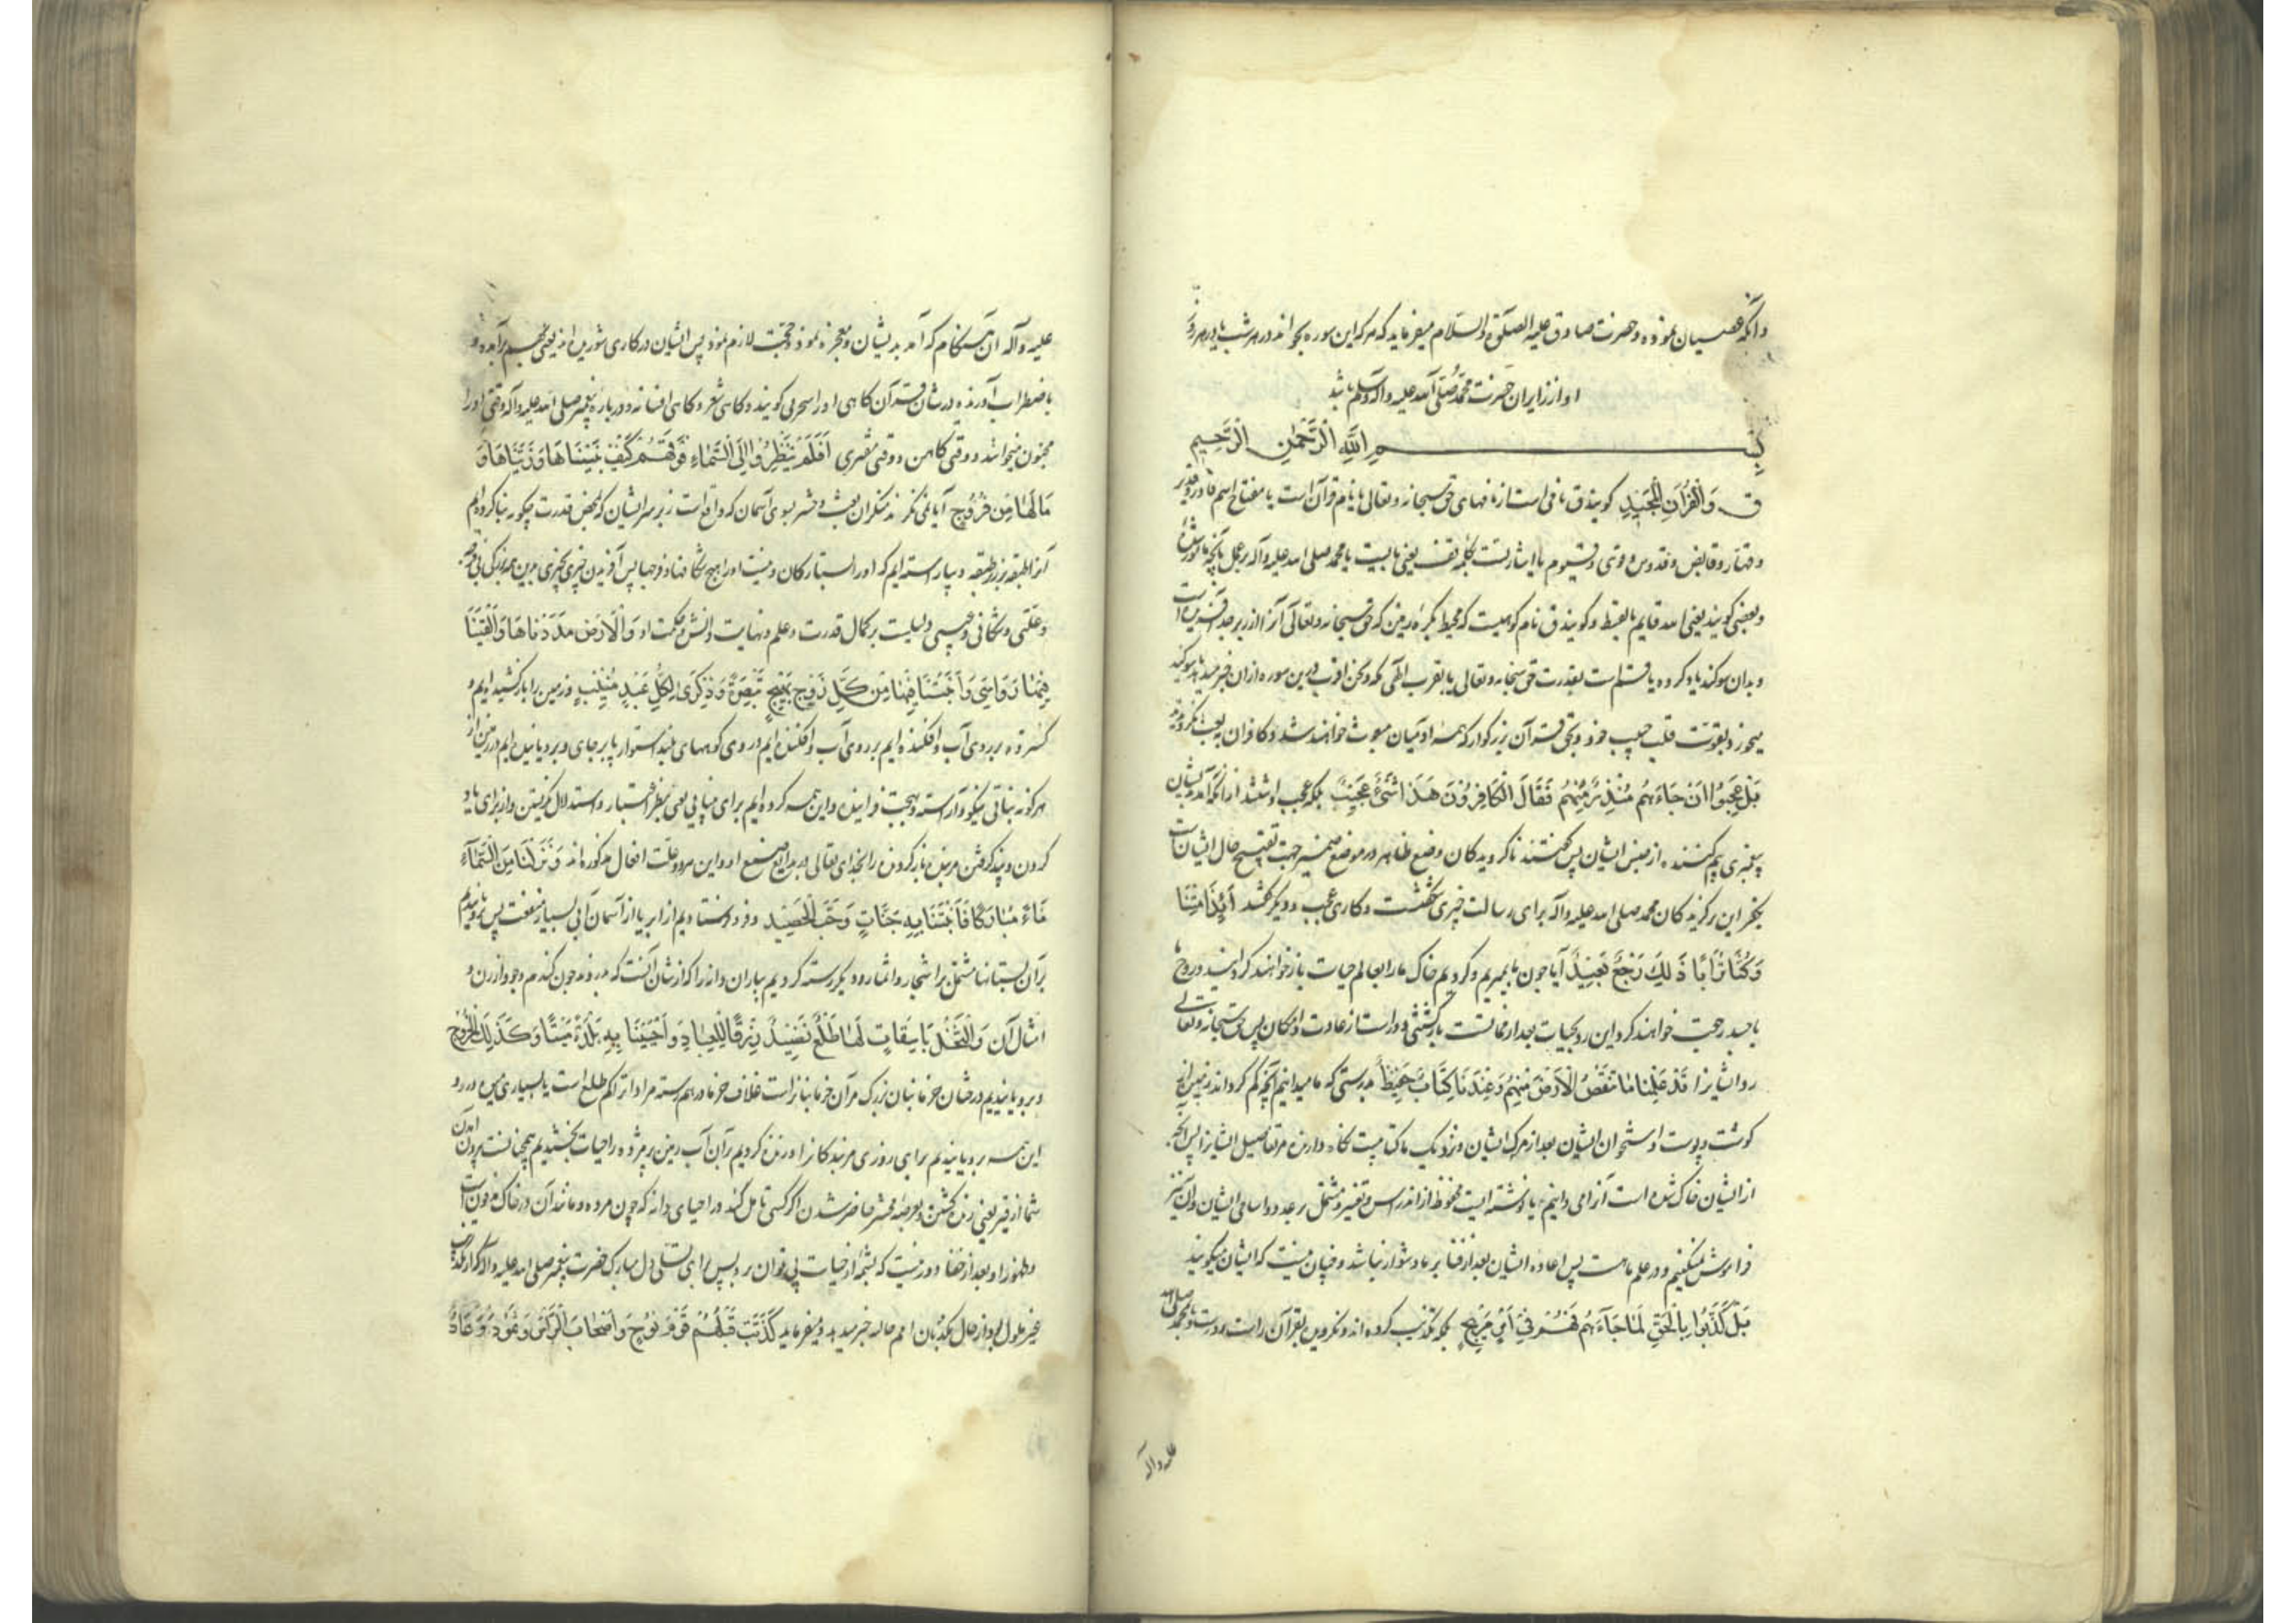 و آنکه عصیان نموده و حضرت صادق علیه الصلوة و السلام میفرماید که هر که این سوره بخواند در هر شب یا در هر روز
او از زایران حضرت محمد صلی الله علیه و آله و سلم باشد
بسم الله الرحمن الرحیم
ق وَالْقُرْآنِ الْمَجِیدِ کویند ق نامی است از نامهای حق سبحانه و تعالی یا نام قرآن است یا مفتاح اسم قادر و قدیر
و قهار و قابض و قدوس و قوی و قیوم یا اشارتست بکلمه قف یعنی بایست یا محمد صلی الله علیه و آله بر عمل بآنچه مامور شدهٔ
و بعضی کویند یعنی الله قایم بالقسط و کویند ق نام کوهیست که محیط بکرهٔ زمین که حق سبحانه و تعالی آنرا از زبرجد آفریده است
و بدان سوکند یاد کرده یا قسم است بقدرت حق سبحانه و تعالی یا بقرب الهی که و نحن اقرب درین سوره از ان خبر میدهد یا سوکند
میخورد بقوت قلب حبیب خود و بحق قرآن بزرکوار که همه آدمیان مبعوث خواهند شد و کافران ببعث نکرویدند
بَلْ عَجِبُوا اَنْ جَاءَهُمْ مُنْذِرٌ مِنْهُمْ فَقَالَ الْکَافِرُونَ هَذَا شَیْءٌ عَجِیبٌ بلکه عجب داشتند از آنکه آمد بدیشان
پیغمبری بیم کننده از جنس ایشان پس کفتند ناکرویدکان وضع ظاهر در موضع ضمیر جهت تقبیح حال ایشانست
بکفر این برکزیدکان محمد صلی الله علیه و آله برای رسالت خبری شکفتست و کاری عجب و دیکر کفتند أَئِذَا مِتْنَا
وَکُنَّا تُرَابًا ذَلِكَ رَجْعٌ بَعِیدٌ آیا چون ما بمیریم و کردیم خاک ما را بعالم حیات باز خواهند کردانید و روح ما
با جسد رجعت خواهند کرد این رد بحیات بعد از ممات بازکشتی دور است از عادت و امکان پس حق سبحانه و تعالی
رد ایشانرا قَدْ عَلِمْنَا مَا تَنْقُصُ الْاَرْضُ مِنْهُمْ وَعِنْدَنَا کِتَابٌ حَفِیظٌ بدرستی که ما میدانیم آنچه کم کرداند زمین از
کوشت و پوست و استخوان ایشان بعد از مرک ایشان و نزدیک ما کتابیست نکاه دارنده مر تفاصیل ایشانرا پس آنچه
از ایشان خاک شده است آنرا می دانیم یا نوشته ایست محفوظ از اندراس و تغییر و مشتمل بر عدد و اسامی ایشان و ان نیز
فراموش نمیکنیم و در علم ماست پس اعاده ایشان بعد از فنا بر ما دشوار نباشد و چنان نیست که ایشان میکویند
بَلْ کَذَّبُوا بِالْحَقِّ لَمَّا جَآءَهُمْ فَهُمْ فِی أَمْرٍ مَرِیجٍ بلکه تکذیب کرده اند و نکرویدن بقرآن راست و درست یا بمحمد صلی الله
علیه و آله
علیه و آله ان هنکام که آمد بدیشان و معجزه نمود و حجت لازم نمود پس ایشان در کاری شوریده اند یعنی
باضطراب آورنده در شان قرآن کاهی او را سحر می کویند و کاهی شعر و کاهی افسانه و درباره پیغمبر صلی الله علیه و آله وقتی او را
مجنون میخوانند و وقتی کاهن و وقتی مفتری أَفَلَمْ یَنْظُرُوا إِلَی السَّمَاءِ فَوْقَهُمْ کَیْفَ بَنَیْنَاهَا وَزَیَّنَّاهَا وَ
مَا لَهَا مِنْ فُرُوجٍ آیا نمی نکرند منکران بعث و حشر بسوی آسمان که واقع است زبر سر ایشان که بمحض قدرت چکونه بنا کرده ایم
آنرا طبقه بر زبر طبقه و بیاراسته ایم که او را بستارکان و نیست او را هیچ شکافها و فرجها پس آفریدن چیزی بدین بزرکی بی
و دلیلیست بر کمال قدرت و علم و نهایت دانش و حکمت او وَالْاَرْضَ مَدَدْنَاهَا وَأَلْقَیْنَا
فِیهَا رَوَاسِیَ وَأَنْبَتْنَا فِیهَا مِنْ کُلِّ زَوْجٍ بَهِیجٍ تَبْصِرَةً وَذِکْرَی لِکُلِّ عَبْدٍ مُنِیبٍ و زمین را باز کشیده ایم و
کسترده بر روی آب و افکنده ایم بر روی آب و افکنده ایم در وی کوههای بلند استوار پا بر جای و برویانیده ایم در زمین از
هر کونه نباتی نیکو و آراسته و بهجت فزاینده و این همه کرده ایم برای بینایی یعنی بنظر اعتبار و استدلال نکریستن و از برای یاد
کردن و پند کرفتن مر بنده باز کردنده را بخدای تعالی در بدایع صنع او و این هر دو علت افعال مذکوره اند وَنَزَّلْنَا مِنَ السَّمَآءِ
مَاءً مُبَارَکًا فَأَنْبَتْنَا بِهِ جَنَّاتٍ وَحَبَّ الْحَصِیدِ و فرو فرستادیم از ابر یا از آسمان آبی بسیار منفعت پس برویانیدیم
بر آن بستانها مشتمل بر اشجار و اثمار و دیکر رسته کردیم بباران دانه را که از شان آنست که بدروند چون کندم و جو و ارزن و
امثال آن وَالنَّخْلَ بَاسِقَاتٍ لَهَا طَلْعٌ نَضِیدٌ رِزْقًا لِلْعِبَادِ وَأَحْیَیْنَا بِهِ بَلْدَةً مَیْتًا وَکَذَلِكَ الْخُرُوجُ
و برویانیدیم درختان خرما بنان بزرک مر آن خرما بنانراست غلاف خرما در هم رسته مراد از تراکم طلع است یا بسیاری میوه در رو
این همه برویانیدیم برای روزی مر بندکانرا و زنده کردیم بآن آب زمین پژمرده را حیات بخشیدیم همچنانست بیرون آمدن
شما از قبر یعنی زنده کشتن و بعرصهٔ محشر حاضر شدن اکر کسی تامل کند در احیای دانه که چون مرده و مانند آن در خاک مدفون است
و ظهور او بعد از خفا دور نیست که بشمه از حیات پی توان برد پس برای تسلی دل مبارک حضرت پیغمبر صلی الله علیه و آله
خبر میدهد و میفرماید کَذَّبَتْ قَبْلَهُمْ قَوْمُ نُوحٍ وَأَصْحَابُ الرَّسِّ وَثَمُودُ وَعَادٌ